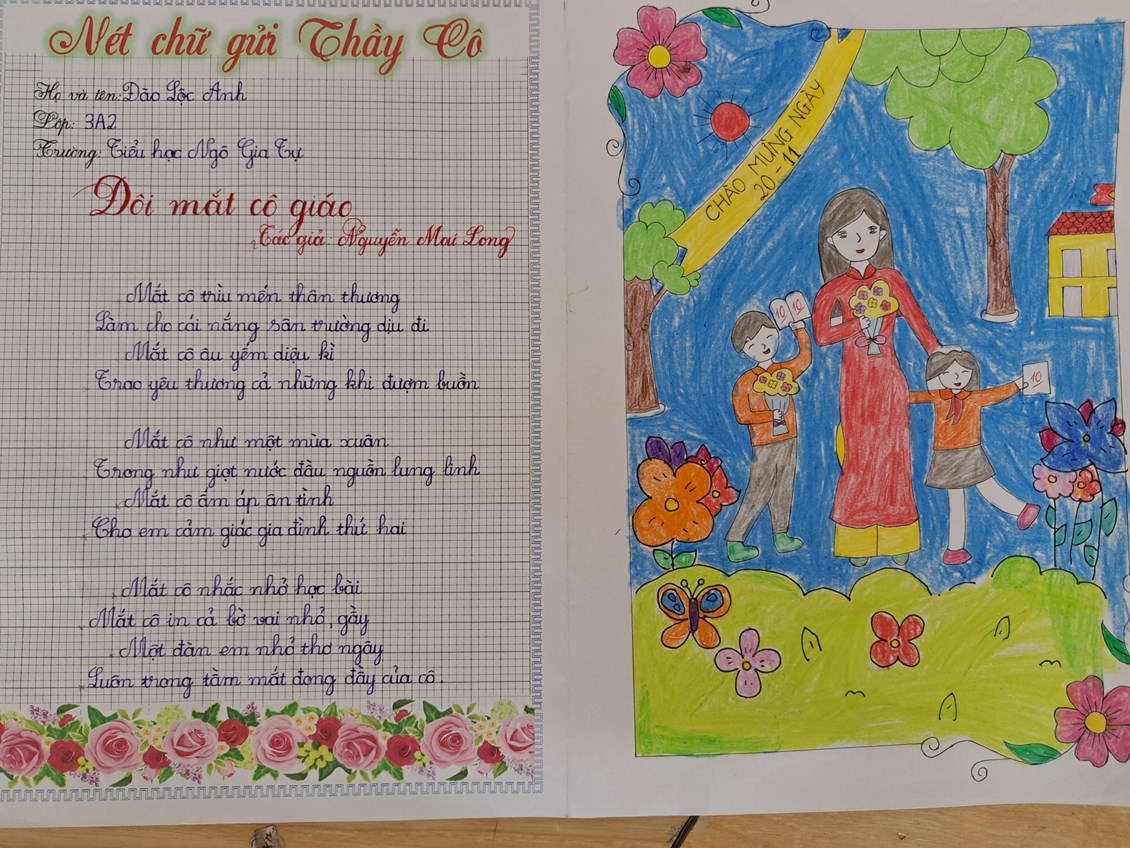 Nét chữ gửi Thầy Cô
Họ và tên: Đào Lộc Anh
Lớp: 3A2
Trường: Tiểu học Ngô Gia Tự
Đôi mắt cô giáo
Tác giả: Nguyễn Mai Long
Mắt cô trìu mến thân thương
Làm cho cái nắng sân trường dịu đi
Mắt cô âu yếm diệu kì
Trao yêu thương cả những khi đượm buồn
Mắt cô như một mùa xuân
Trong như giọt nước đầu nguồn lung linh
Mắt cô ấm áp ân tình
Cho em cảm giác gia đình thứ hai
Mắt cô nhắc nhở học bài
Mắt cô in cả bờ vai nhỏ, gầy
Một đàn em nhỏ thơ ngây
Luôn trong tầm mắt đong đầy của cô.
CHÀO MỪNG NGÀY
20 - 11
10 10
10